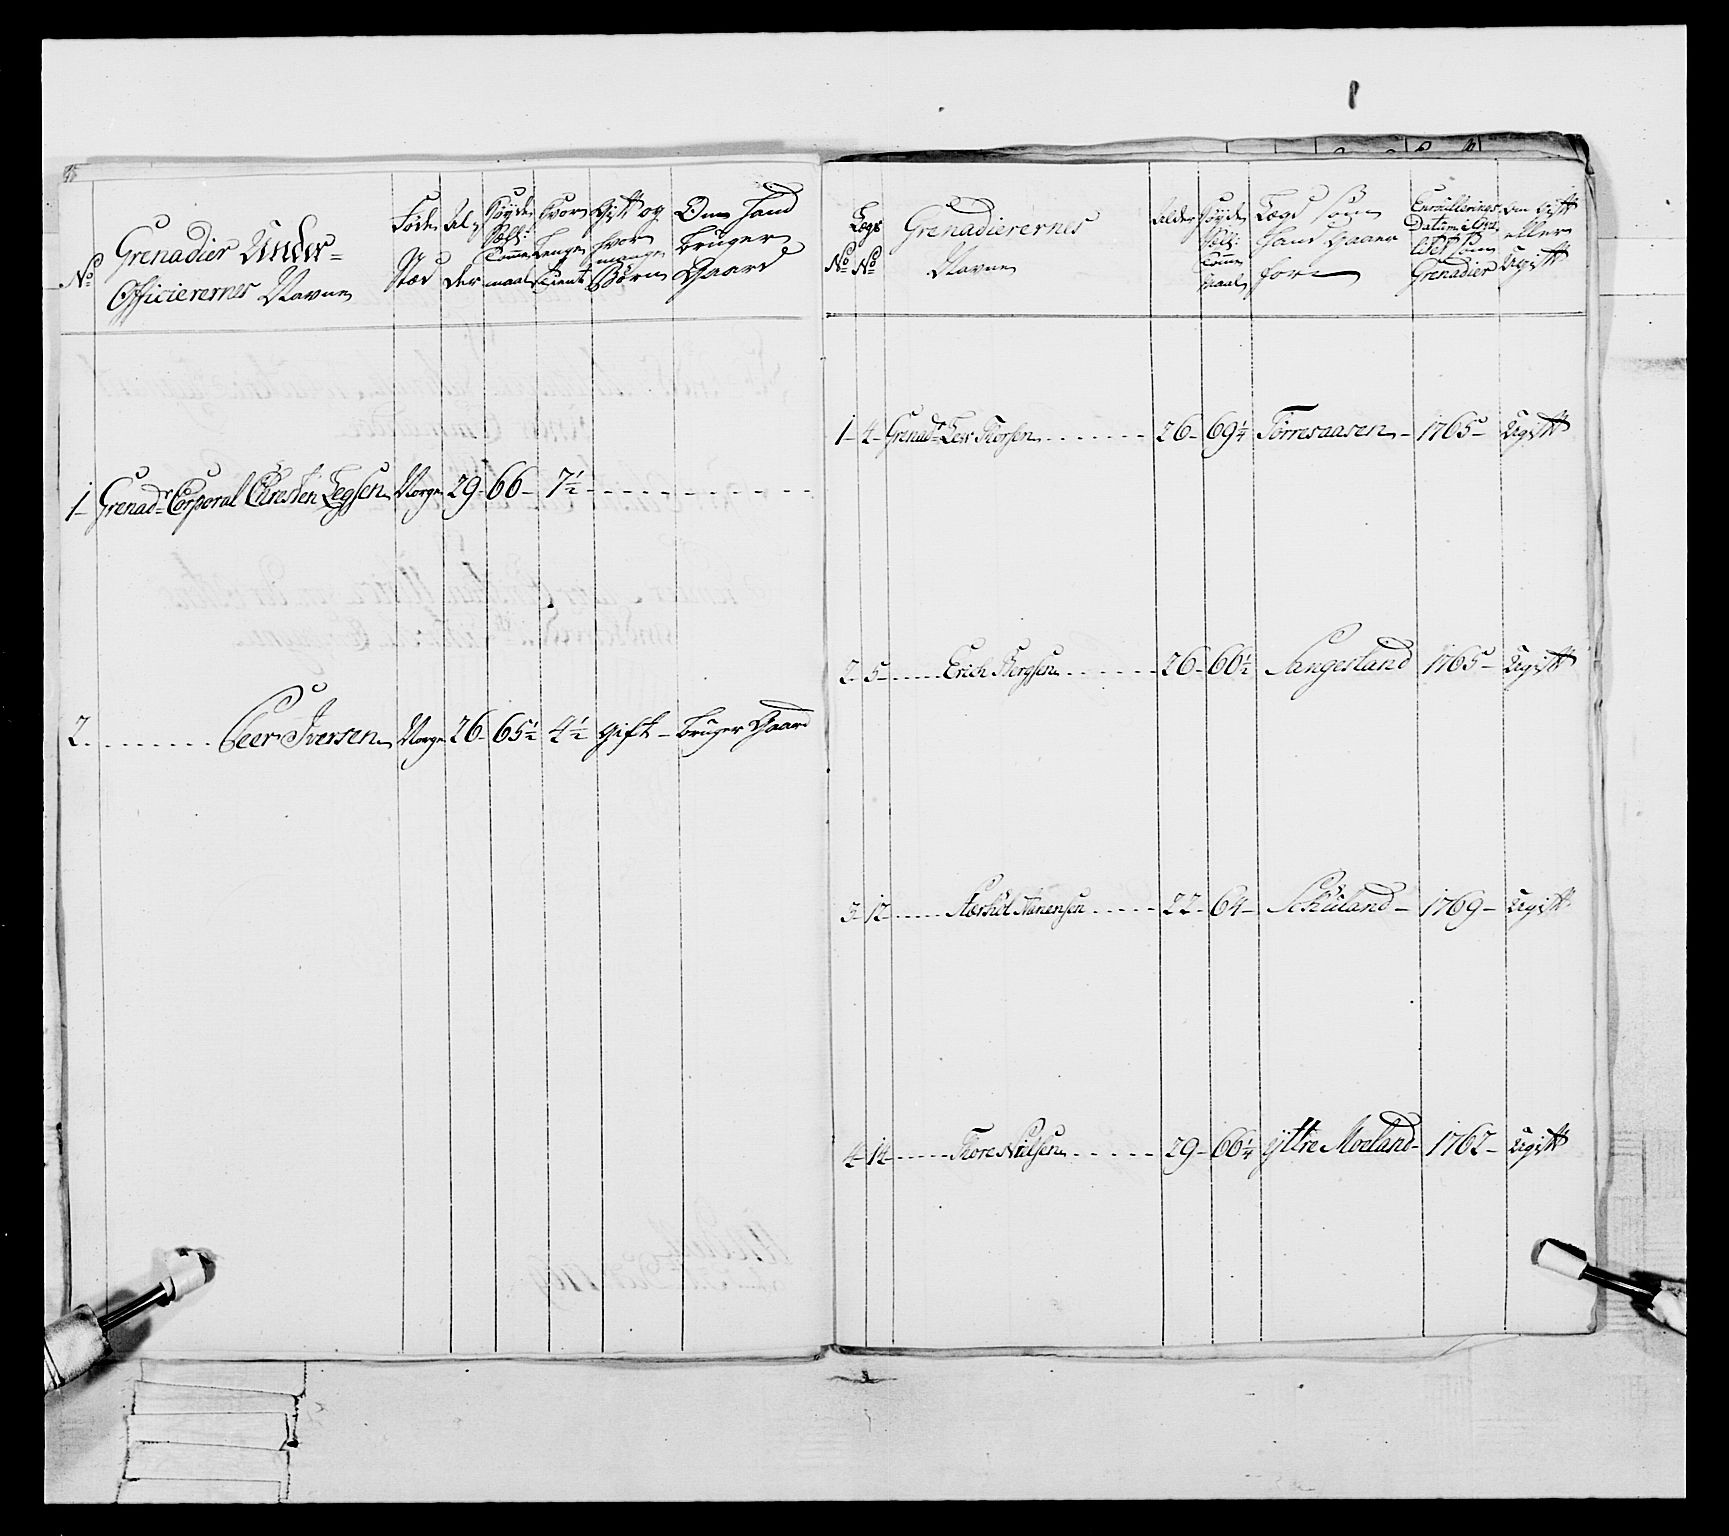 No
Grenadier Under=
Officierernes Navne
Føde
Stæd
Al
der
Høyde
Sæll:
Tomme
maal
Hvor
Lenge
Tient
Gift og
hvor
mange
Børn
Om hand
bruger
Gaard
1 Grenadr Corporal Christen Legsen Norge 29 66 7½
2 Peer Iversen Norge 26 65½ 4½ gift bruger Gaard
No
Lægs
No
Grenadierernes
Navne
Alder
Høyde
Sæll:
Tomme
Maal
Lægd som
hand gaaer
for
Enroullerings
Datum
som
Grenadier
Om gift
eller
Ugift
1 4 Grenadr Torsen 26 69¼ Torresaasen 1765 Ugift
2 5 Erich Bergsen 26 60½ Sangesland 1765 Ugift
3 12 Stærkol Aanensen 22 64 Schuland 1769 Ugift
4 14 Tore Nielsen 29 66¼ ÿttre Moeland 1762 Ugift